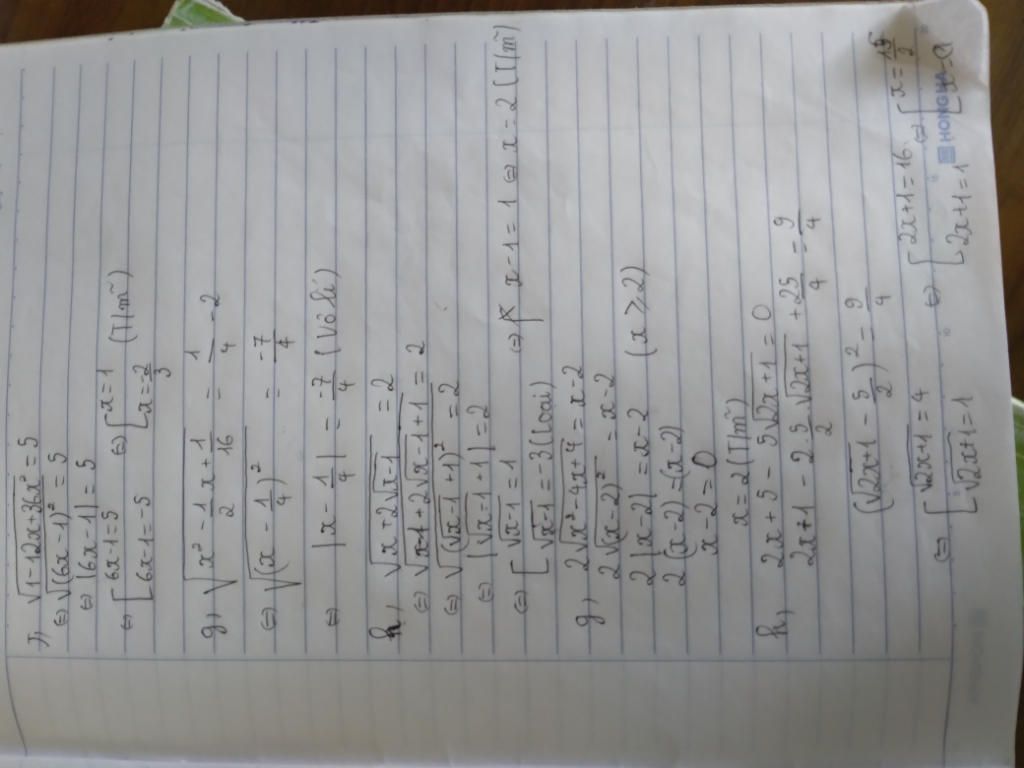 f) √(1-12x+36x²) = 5
⇔ √(6x-1)² = 5
⇔ |6x-1| = 5
⇔ [6x-1=5 ⇔ [x=1 (T/m)
[6x-1=-5 [x=-2/3
g) √(x² - 1/2 x + 1/16) = 1/4 - 2
⇔ √(x - 1/4)² = -7/4
⇔ |x - 1/4| = -7/4 (Vô lí)
h) √(x+2√(x-1)) = 2
⇔ √(x-1+2√(x-1)+1) = 2
⇔ √(√(x-1)+1)² = 2
⇔ |√(x-1)+1| = 2
⇔ [√(x-1) = 1 ⇔ x-1=1 ⇔ x=2 (T/m)
[√(x-1) = -3 (Loại)
g) 2√(x²-4x+4) = x-2
2√(x-2)² = x-2
2|x-2| = x-2 (x ⩾ 2)
2(x-2) = (x-2)
x-2=0
x=2 (T/m)
h) 2x+5-5√(2x+1) = 0
2x+1 - 2.5/2.√(2x+1) + 25/4 = 9/4
(√(2x+1) - 5/2)² = 9/4
⇔ [√(2x+1) = 4 ⇔ [2x+1=16 ⇔ [x=15/2
[√(2x+1) = 1 [2x+1=1
HONG HA